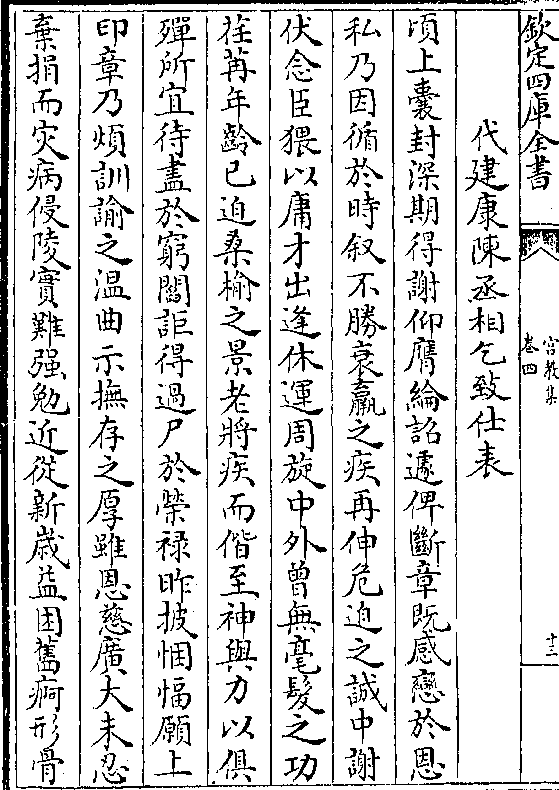 欽定四庫全書
宫教集
卷四
十三
代建康陳丞相乞致仕表
頃上囊封深期得謝仰膺綸詔遽俾斷章既感戀於恩
私乃因循於時叙不勝衰羸之疾再伸危迫之誠中謝
伏念臣猥以庸才出逢休運周旋中外曽無毫髮之功
荏苒年齡已迫桑榆之景老將疾而偕至神與力以俱
殫所宜待盡於窮閻詎得過尸於榮禄昨披悃愊願上
印章乃煩訓諭之温曲示撫存之厚雖恩慈廣大未忍
棄捐而灾病侵陵實難强勉近從新歳益困舊痾形骨